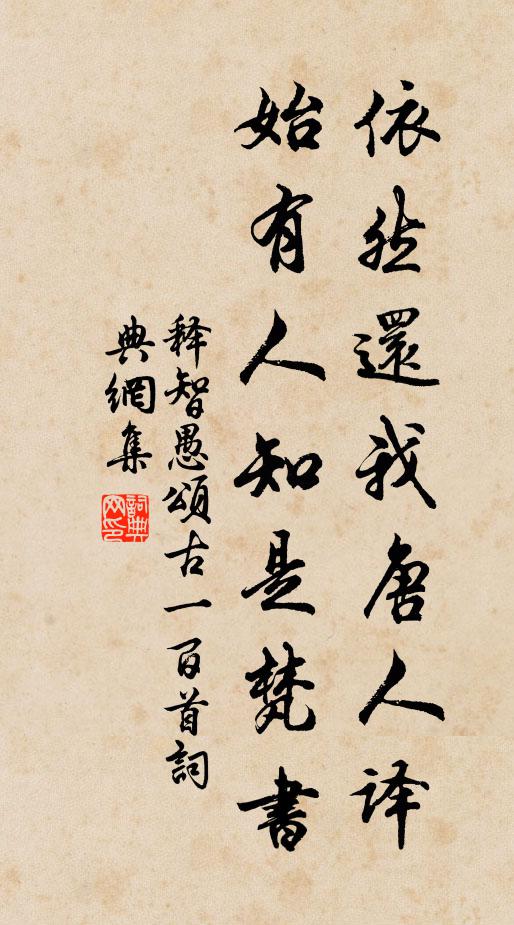 依然還我唐人译
始有人知是梵書
释智愚頌古一百首詞
典網集
詞典网印